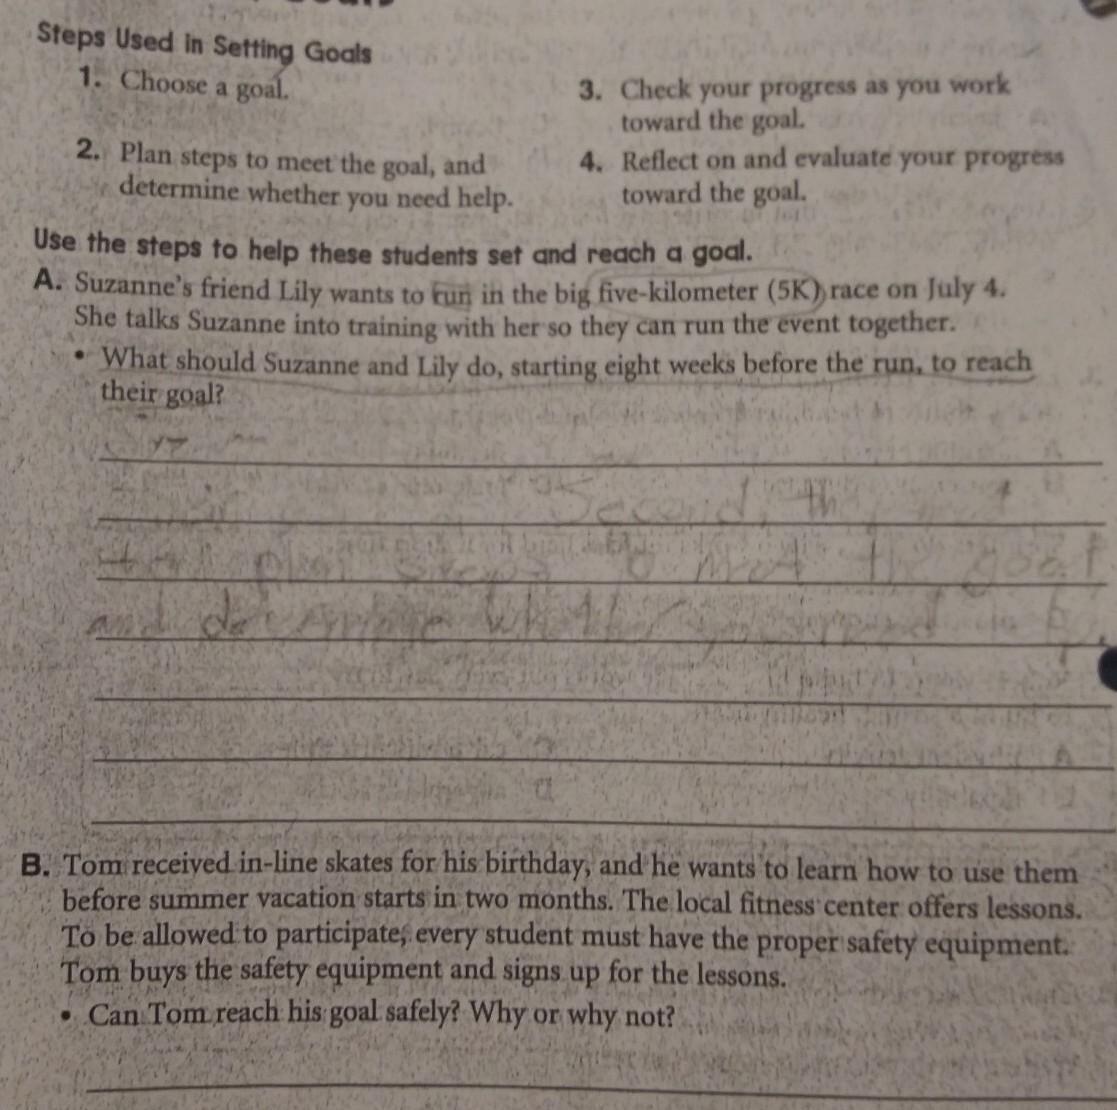 Steps Used in Setting Goals
1. Choose a goal.
2. Plan steps to meet the goal, and
determine whether you need help.
3. Check your progress as you work
toward the goal.
4. Reflect on and evaluate your progress
toward the goal.
Use the steps to help these students set and reach a goal.
A. Suzanne's friend Lily wants to run in the big five-kilometer (5K) race on July 4.
She talks Suzanne into training with her so they can run the event together.
• What should Suzanne and Lily do, starting eight weeks before the run, to reach
their goal?
Second, the
plan steps to meet the goal
and determine whether you need
B. Tom received in-line skates for his birthday, and he wants to learn how to use them
before summer vacation starts in two months. The local fitness center offers lessons.
To be allowed to participate, every student must have the proper safety equipment.
Tom buys the safety equipment and signs up for the lessons.
• Can Tom reach his goal safely? Why or why not?